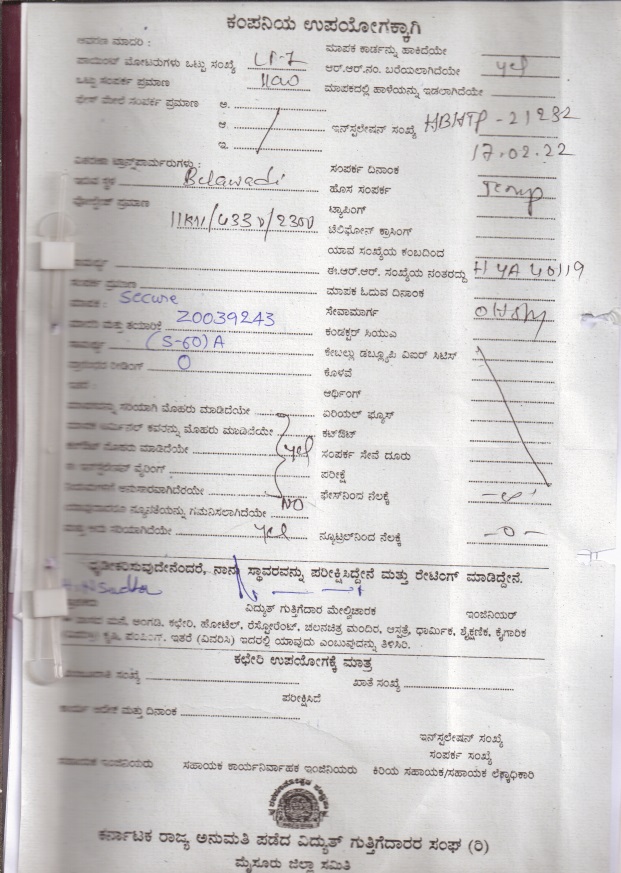 ಕಂಪನಿಯ ಉಪಯೋಗಕ್ಕಾಗಿ
ಮಾಪಕ ಕಾರ್ಡನ್ನು ಹಾಕಿದೆಯೇ
ಪಾಯಿಂಟ್ ಮೋಟರುಗಳು ಒಟ್ಟು ಸಂಖ್ಯೆ LP-1 ಆರ್.ಆರ್.ನಂ. ಬರೆಯಲಾಗಿದೆಯೇ yes
ಒಟ್ಟು ಸಂಪರ್ಕ ಪ್ರಮಾಣ ಮಾಪಕದಲ್ಲಿ ಹಾಳೆಯನ್ನು ಇಡಲಾಗಿದೆಯೇ
ಫೇಸ್ ಮೇಲೆ ಸಂಪರ್ಕ ಪ್ರಮಾಣ ಅ.
ಆ. ಇನ್‌ಸ್ಟಲೇಷನ್ ಸಂಖ್ಯೆ HBHTP - 21232
ಇ. 17.02.22
ಸಂಪರ್ಕ ದಿನಾಂಕ
ಇರುವ ಸ್ಥಳ Belawadi ಹೊಸ ಸಂಪರ್ಕ Temp
ವೋಲ್ಟೇಜ್ ಪ್ರಮಾಣ ಟ್ಯಾಪಿಂಗ್
11KV/433V/230V ಟೆಲಿಫೋನ್ ಕ್ರಾಸಿಂಗ್
ಯಾವ ಸಂಖ್ಯೆಯ ಕಂಬದಿಂದ
ಸಾಮರ್ಥ್ಯ ಈ.ಆರ್.ಆರ್. ಸಂಖ್ಯೆಯ ನಂತರದ್ದು HYA 40119
ಸಂಪರ್ಕ ಪ್ರಮಾಣ ಮಾಪಕ ಓದುವ ದಿನಾಂಕ
ಮಾಪಕ : Secure ಸೇವಾಮಾರ್ಗ
ಮಾದರಿ ಮತ್ತು ತಯಾರಿಕೆ Z0039243 ಕಂಡಕ್ಟರ್ ಸಿಯುಎ
ಸಾಮರ್ಥ್ಯ (5-60)A ಕೇಬಲ್ಲು ಡಬ್ಲ್ಯೂಪಿ ವಿಐರ್ ಸಿಟಿಸ್
ಪ್ರಾರಂಭದ ರೀಡಿಂಗ್ 0 ಕೊಳವೆ
ಆರ್ಥಿಂಗ್
ಮಾಪಕವನ್ನು ಸರಿಯಾಗಿ ಮೊಹರು ಮಾಡಿದೆಯೇ ಏರಿಯಲ್ ಫ್ಯೂಸ್
ಮಾಪಕ ಟರ್ಮಿನಲ್ ಕವರನ್ನು ಮೊಹರು ಮಾಡಿದೆಯೇ ಕಟ್‌ಔಟ್
ಕಟ್‌ಔಟ್ ಮೊಹರು ಮಾಡಿದೆಯೇ yes ಸಂಪರ್ಕ ಸೇನೆ ದೂರು
ವೈರಿಂಗ್ ಪರೀಕ್ಷೆ
ನಿಯಮಗಳಿಗೆ ಅನುಸಾರವಾಗಿದೆಯೇ ಫೇಸ್‌ನಿಂದ ನೆಲಕ್ಕೆ
ಯಾವುದಾದರೂ ನ್ಯೂನತೆಯನ್ನು ಗಮನಿಸಲಾಗಿದೆಯೇ NO
ಮತ್ತು ಅದು ಸರಿಯಾಗಿದೆಯೇ yes ನ್ಯೂಟ್ರಲ್‌ನಿಂದ ನೆಲಕ್ಕೆ - 0 -
ಧೃಡೀಕರಿಸುವುದೇನೆಂದರೆ, ನಾನು ಸ್ಥಾವರವನ್ನು ಪರೀಕ್ಷಿಸಿದ್ದೇನೆ ಮತ್ತು ರೇಟಿಂಗ್ ಮಾಡಿದ್ದೇನೆ.
ವಿದ್ಯುತ್ ಗುತ್ತಿಗೆದಾರ ಮೇಲ್ವಿಚಾರಕ ಇಂಜಿನಿಯರ್
ವಾಸದ ಮನೆ, ಅಂಗಡಿ, ಕಛೇರಿ, ಹೋಟೆಲ್, ರೆಸ್ಟೋರೆಂಟ್, ಚಲನಚಿತ್ರ ಮಂದಿರ, ಆಸ್ಪತ್ರೆ, ಧಾರ್ಮಿಕ, ಶೈಕ್ಷಣಿಕ, ಕೈಗಾರಿಕ
ಕೃಷಿ, ಪಂಪಿಂಗ್, ಇತರೆ (ವಿವರಿಸಿ) ಇದರಲ್ಲಿ ಯಾವುದು ಎಂಬುವುದನ್ನು ತಿಳಿಸಿರಿ.
ಕಛೇರಿ ಉಪಯೋಗಕ್ಕೆ ಮಾತ್ರ
ಸಂಖ್ಯೆ ಖಾತೆ ಸಂಖ್ಯೆ
ಪರೀಕ್ಷಿಸಿದೆ
ಕಾರ್ಯ ಆದೇಶ ಮತ್ತು ದಿನಾಂಕ
ಇನ್‌ಸ್ಟಲೇಷನ್ ಸಂಖ್ಯೆ
ಸಂಪರ್ಕ ಸಂಖ್ಯೆ
ಸಹಾಯಕ ಇಂಜಿನಿಯರು ಸಹಾಯಕ ಕಾರ್ಯನಿರ್ವಾಹಕ ಇಂಜಿನಿಯರು ಕಿರಿಯ ಸಹಾಯಕ/ಸಹಾಯಕ ಲೆಕ್ಕಾಧಿಕಾರಿ
ಕರ್ನಾಟಕ ರಾಜ್ಯ ಅನುಮತಿ ಪಡೆದ ವಿದ್ಯುತ್ ಗುತ್ತಿಗೆದಾರರ ಸಂಘ (ರಿ)
ಮೈಸೂರು ಜಿಲ್ಲಾ ಸಮಿತಿ